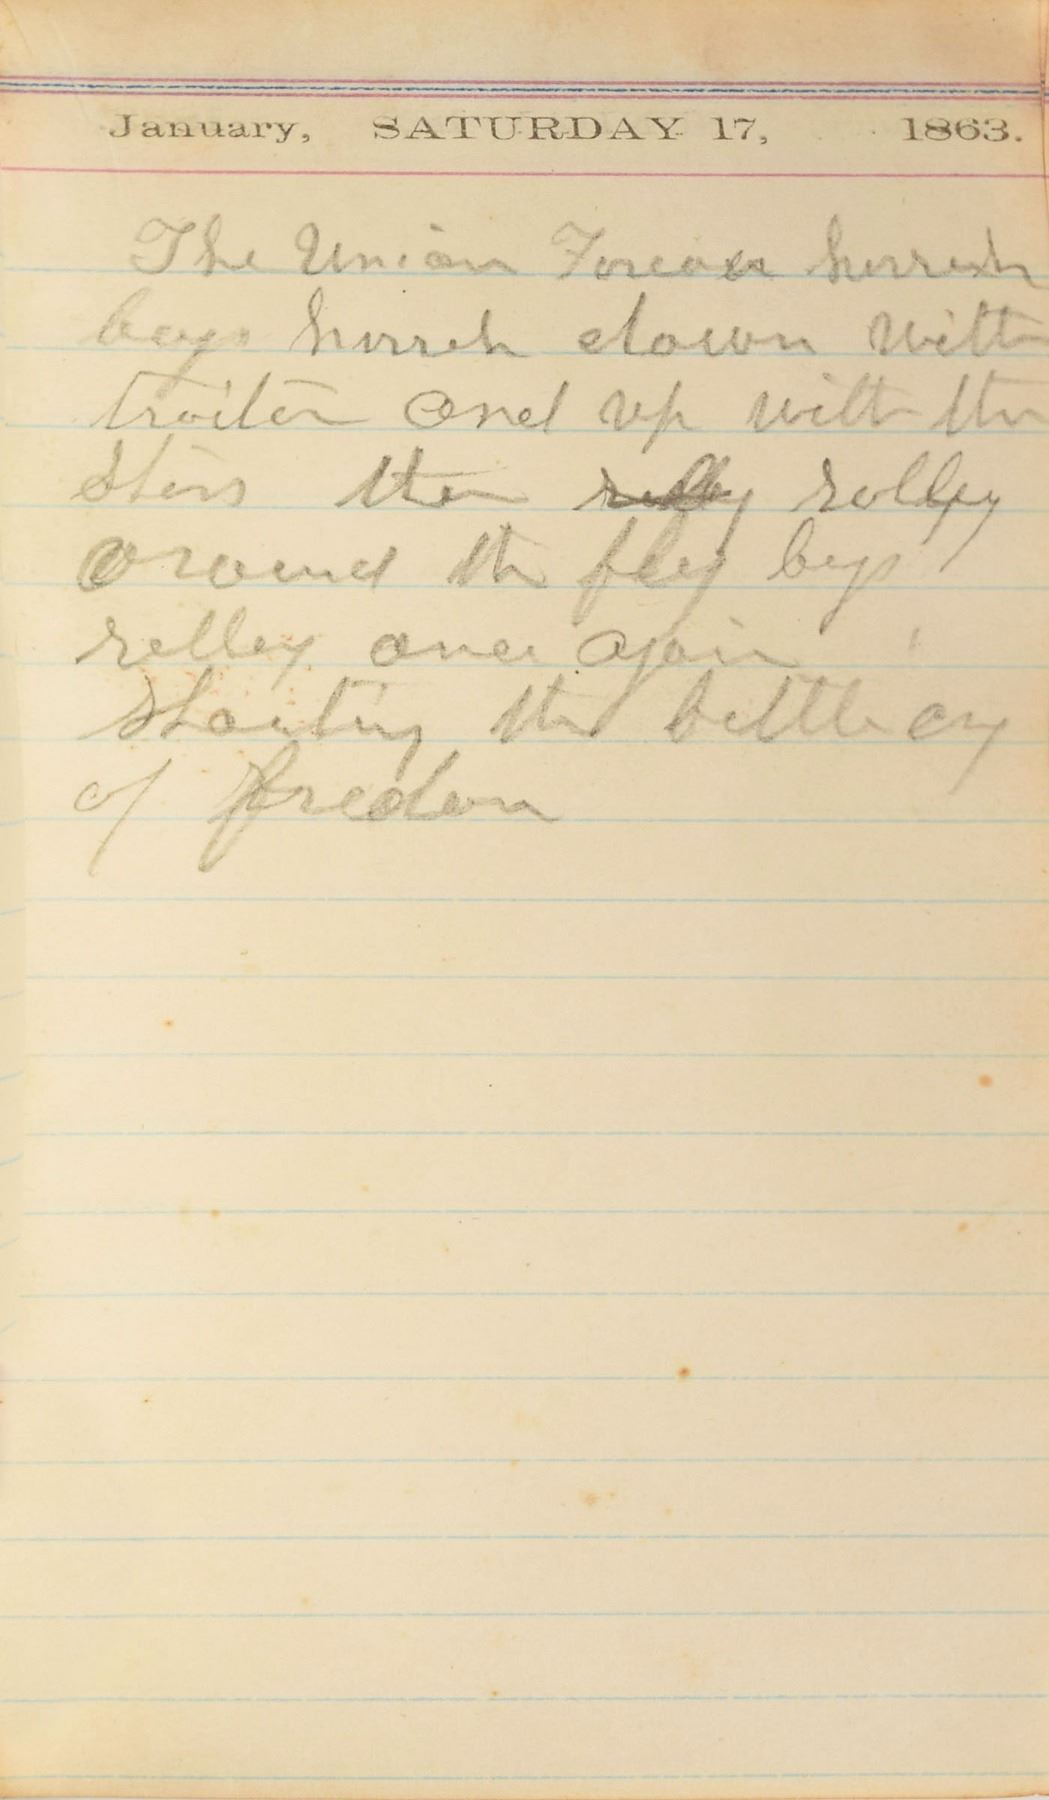 January, SATURDAY 17, 1863.
The Union Forever hurrah
boys hurrah down with
traitor and up with the
stars then rally ralley
around the flag boys
ralley once again
shouting the battle cry
of fredom